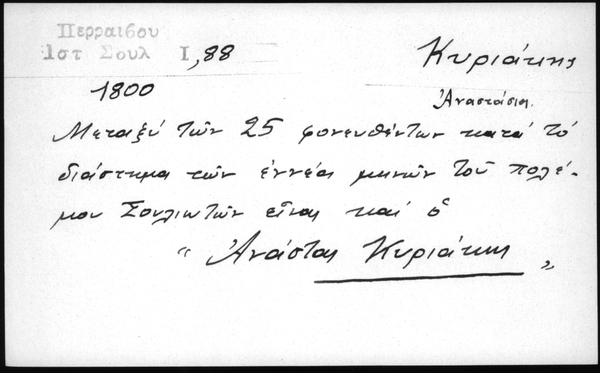 Περραιβου
Ιστ Σουλ Ι, 88
Κυριάκης
1800
Ἀναστάσι.
Μεταξύ τῶν 25 φονευθέντων κατά τό
διάστημα τῶν ἐννέα μηνῶν τοῦ πολέ-
μου Σουλιωτῶν εἶναι καί ὁ
" Ἀνάστας Κυριάκης "